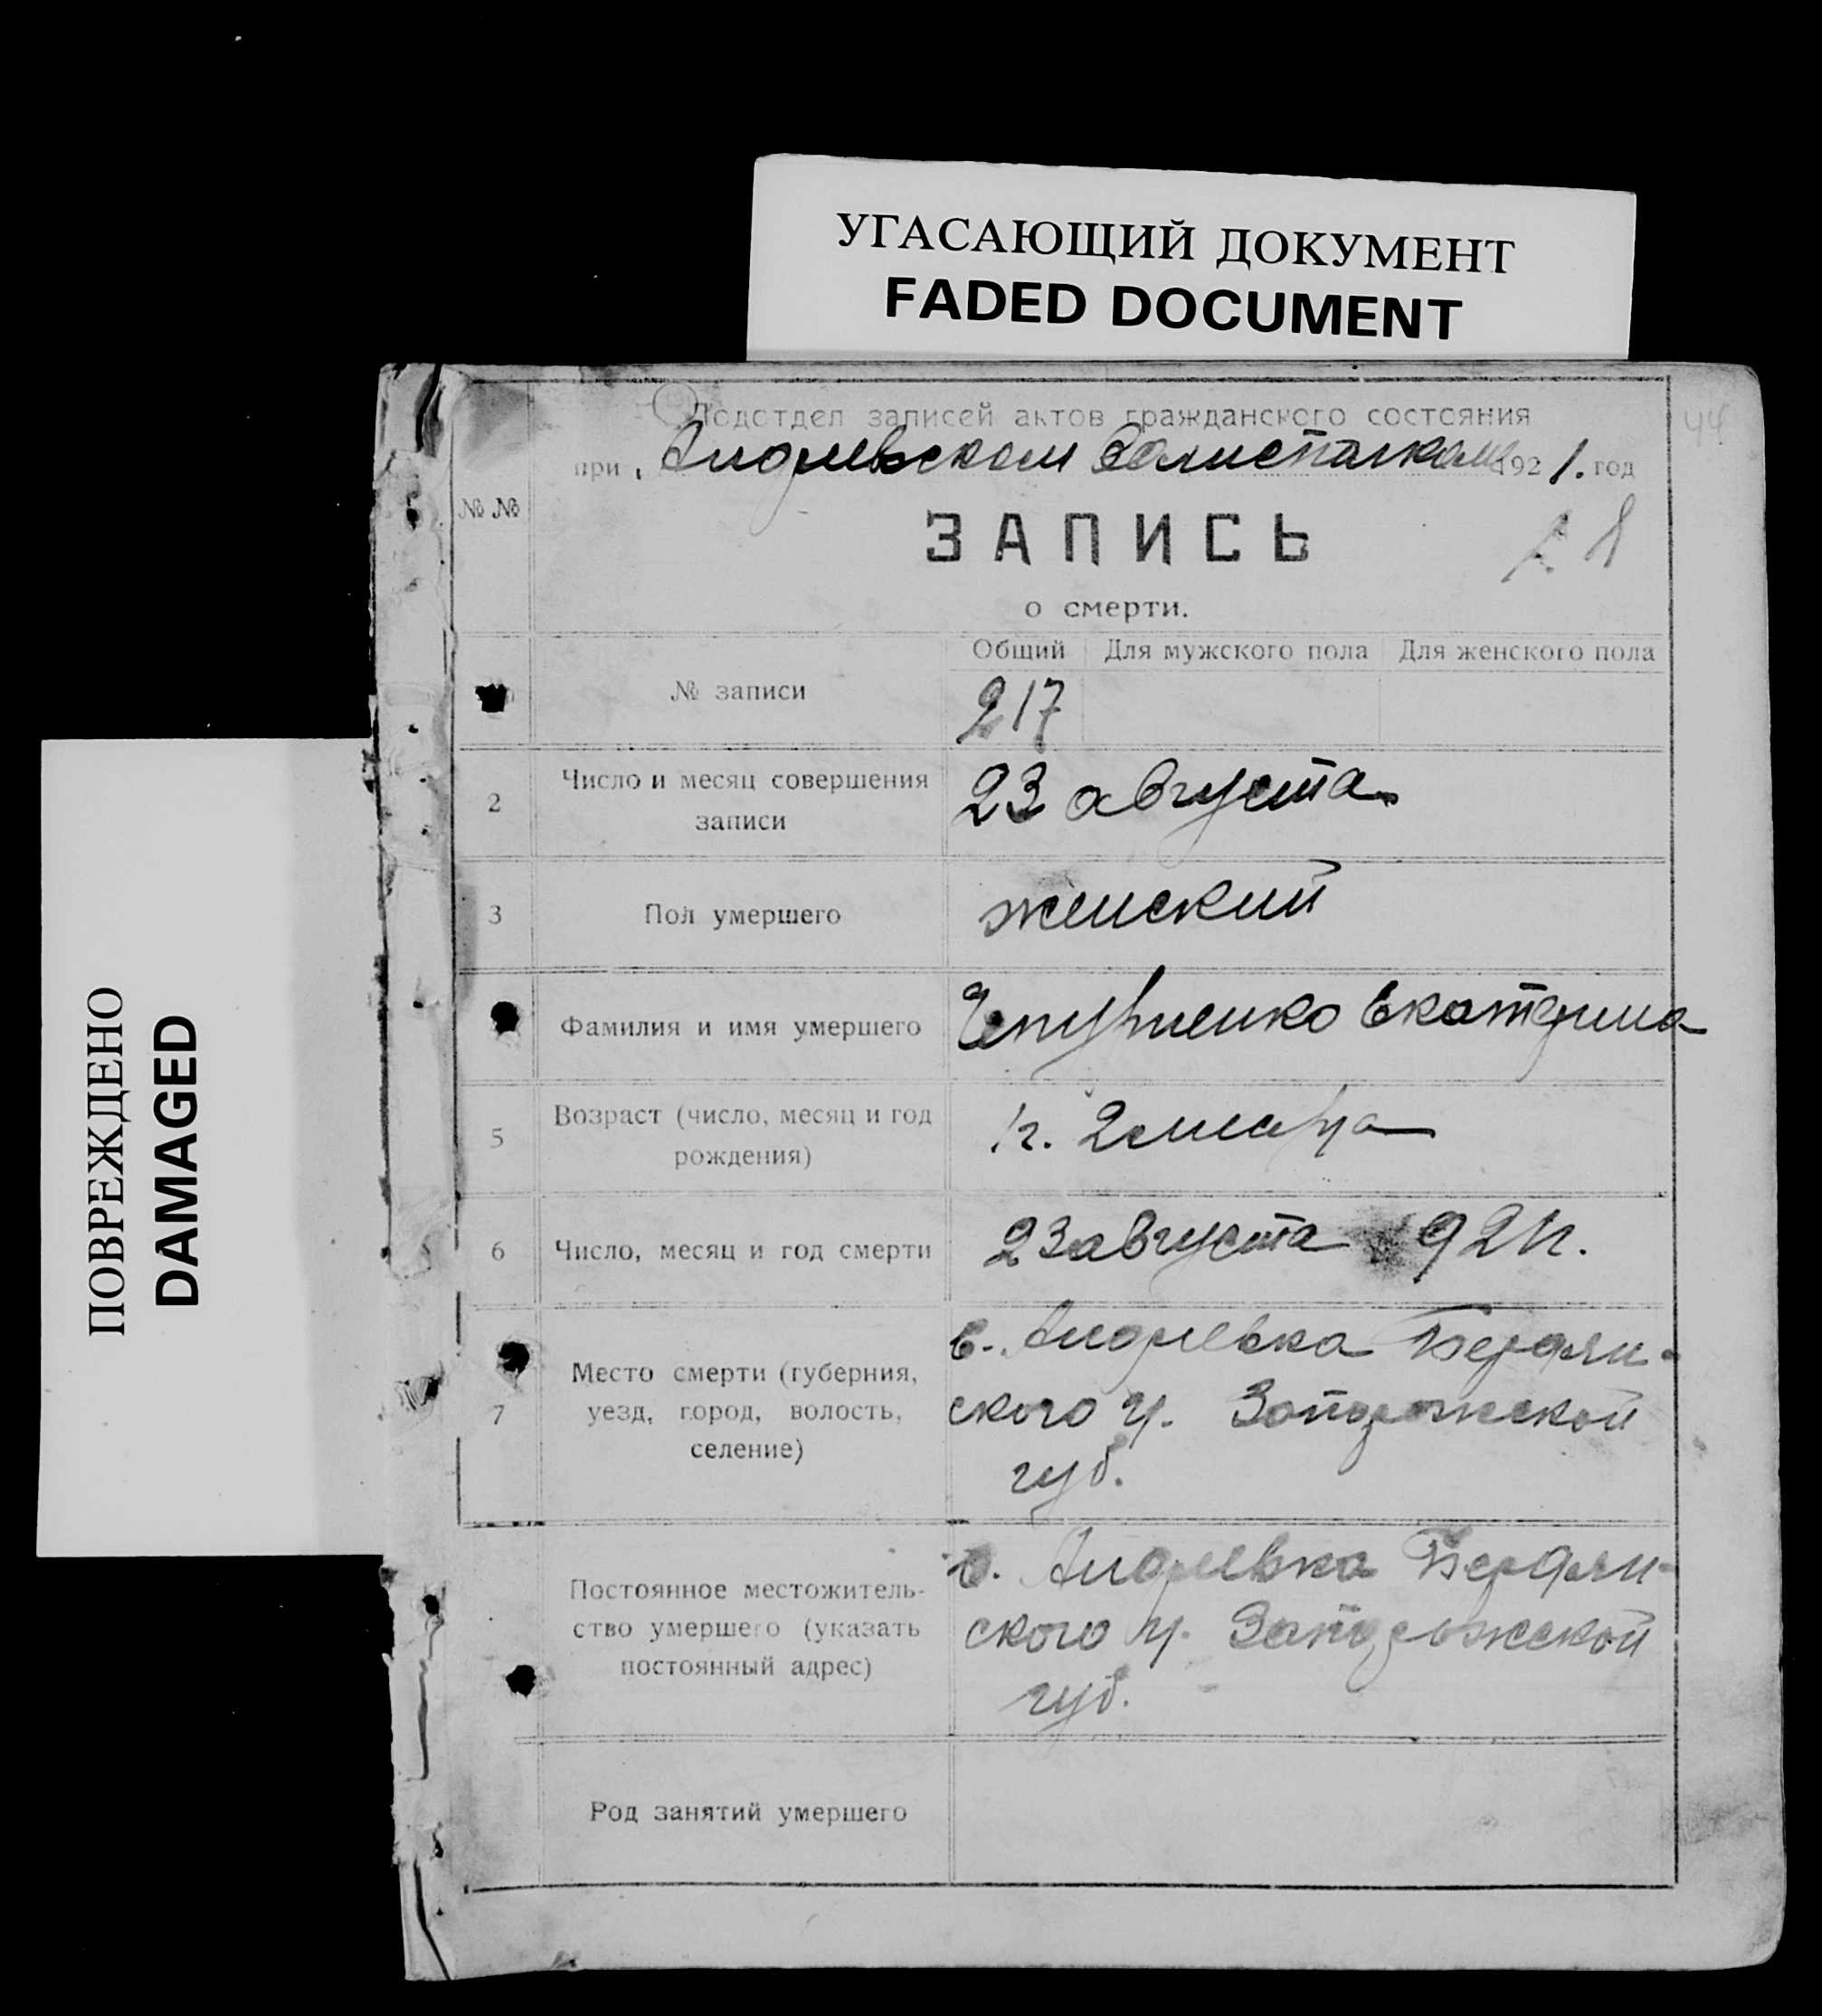 УГАСАЮЩИЙ ДОКУМЕНТ
FADED DOCUMENT
ПОВРЕЖДЕНО
DAMAGED
44
Подотдел записей актов гражданского состояния
при Андреевском 1921. год
№ №
ЗАПИСЬ
о смерти.
Общий Для мужского пола Для женского пола
№ записи 217
2 Число и месяц совершения
записи
23 августа
3 Пол умершего женский
Фамилия и имя умершего Екатерина
5 Возраст (число, месяц и год
рождения)
1г. 2 месяца
6 Число, месяц и год смерти 23 августа 921г.
7 Место смерти (губерния,
уезд, город, волость,
селение)
с. Андреевка Бердян-
ского у. Запорожской
губ.
Постоянное местожитель-
ство умершего (указать
постоянный адрес)
с. Андреевка Бердян-
ского у. Запорожской
губ.
Род занятий умершего